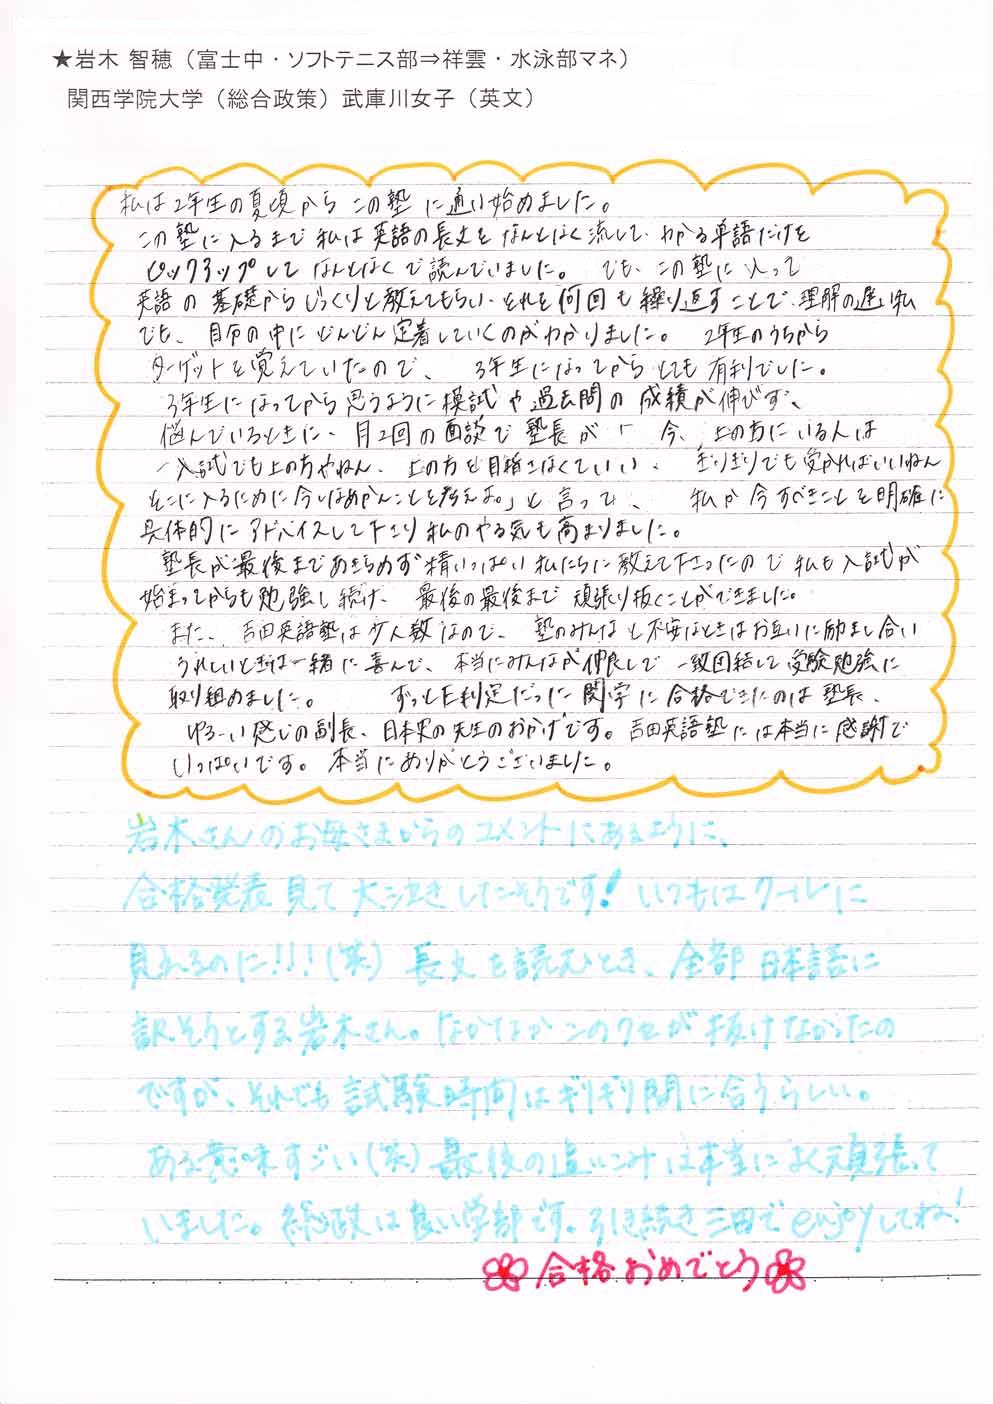 ★岩木 智穂（富士中・ソフトテニス部⇒祥雲・水泳部マネ）
関西学院大学（総合政策）武庫川女子（英文）
私は2年生の夏頃からこの塾に通い始めました。
この塾に入るまで私は英語の長文をなんとなく流して、わかる単語だけを
ピックアップしてなんとなくで読んでいました。でも、この塾に入って
英語の基礎からじっくりと教えてもらい、それを何回も繰り返すことで、理解の遅い私
でも、自分の中にどんどん定着していくのがわかりました。2年生のうちから
ターゲットを覚えていたので、3年生になってからとても有利でした。
3年生になってから思うように模試や過去問の成績が伸びず、
悩んでいるときに、月2回の面談で塾長が「今、上の方にいる人は
入試でも上の方やねん、上の方を目指さなくていい、ぎりぎりでも受かればいいねん
そこに入るために今しなあかんことを考えよ。」と言って、私が今すべきことを明確に
具体的にアドバイスして下さり私のやる気も高まりました。
塾長が最後まであきらめず精いっぱい私たちに教えて下さったので私も入試が
始まってからも勉強し続け、最後の最後まで頑張り抜くことができました。
また、吉田英語塾は少人数なので、塾のみんなと不安なときはお互いに励まし合い
うれしいときは一緒に喜んで、本当にみんなが仲良しで一致団結して受験勉強に
取り組めました。ずっとE判定だった関学に合格できたのは塾長、
ゆるーい感じの副長、日本史の先生のおかげです。吉田英語塾には本当に感謝で
いっぱいです。本当にありがとうございました。
岩木さんのお母さまからのコメントにあるように、
合格発表見て大泣きしたそうです！いつもはクールに
見れるのに！！！（笑）長文を読むとき、全部日本語に
訳そうとする岩木さん。なかなかこのクセが抜けなかったの
ですが、それでも試験時間はギリギリ間に合うらしい。
ある意味すごい（笑）最後の追いこみは本当によく頑張って
いました。総政は良い学部です。引き続き三田でenjoyしてね！
合格おめでとう